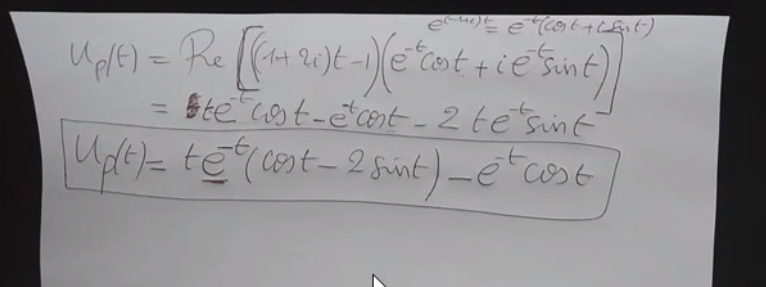 e^{(-1+i)t} = e^{-t}(cost + i sint)
U_p(t) = Re [((1+2i)t-1)(e^{-t}cost + i e^{-t}sint)]
= te^{-t}cost - e^{-t}cost - 2te^{-t}sint
U_p(t) = te^{-t}(cost - 2sint) - e^{-t}cost